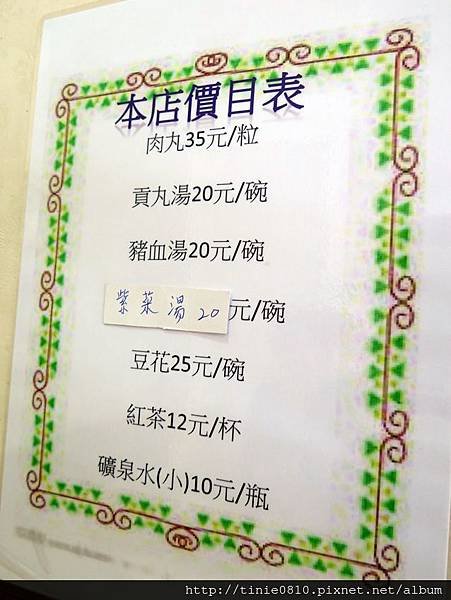 本店價目表
肉丸35元/粒
貢丸湯20元/碗
豬血湯20元/碗
紫菜湯20元/碗
豆花25元/碗
紅茶12元/杯
礦泉水(小)10元/瓶
http://tinie0810.pixnet.net/album